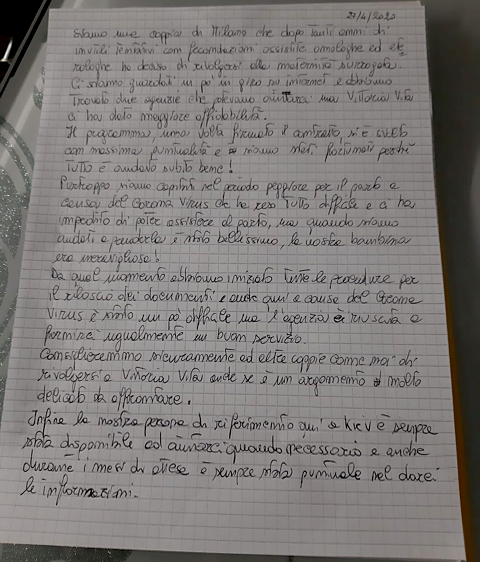 27/4/2020
Siamo una coppia di Milano che dopo tanti anni di
inutili tentativi con fecondazioni assistite omologhe ed ete
rologhe ha deciso di rivolgersi alla maternità surrogata.
Ci siamo guardati un pò in giro su internet e abbiamo
trovato due agenzie che potevano aiutarci ma Vittoria Vita
ci ha dato maggiore affidabilità.
Il programma, una volta firmato il contratto, si è svolto
con massima puntualità e siamo stati fortunati perchè
tutto è andato subito bene!
Purtroppo siamo capitati nel periodo peggiore per il parto a
causa del Corona Virus che ha reso tutto difficile e ci ha
impedito di poter assistere al parto, ma quando siamo
andati a prenderla è stato bellissimo, la nostra bambina
era meravigliosa!
Da quel momento abbiamo iniziato tutte le procedure per
il rilascio dei documenti e anche qui a causa del Corona
Virus è stato un pò difficile ma l'agenzia è riuscita a
fornirci ugualmente un buon servizio.
Consiglieremmo sicuramente ad altre coppie come noi di
rivolgersi a Vittoria Vita anche se è un argomento molto
delicato da affrontare.
Infine la nostra persona di riferimento qui a Kiev è sempre
stata disponibile ad aiutarci quando necessario e anche
durante i mesi di attesa è sempre stata puntuale nel darci
le informazioni.